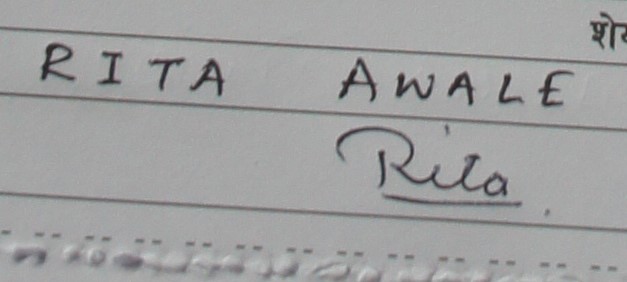 RITA AWALE
Rita.